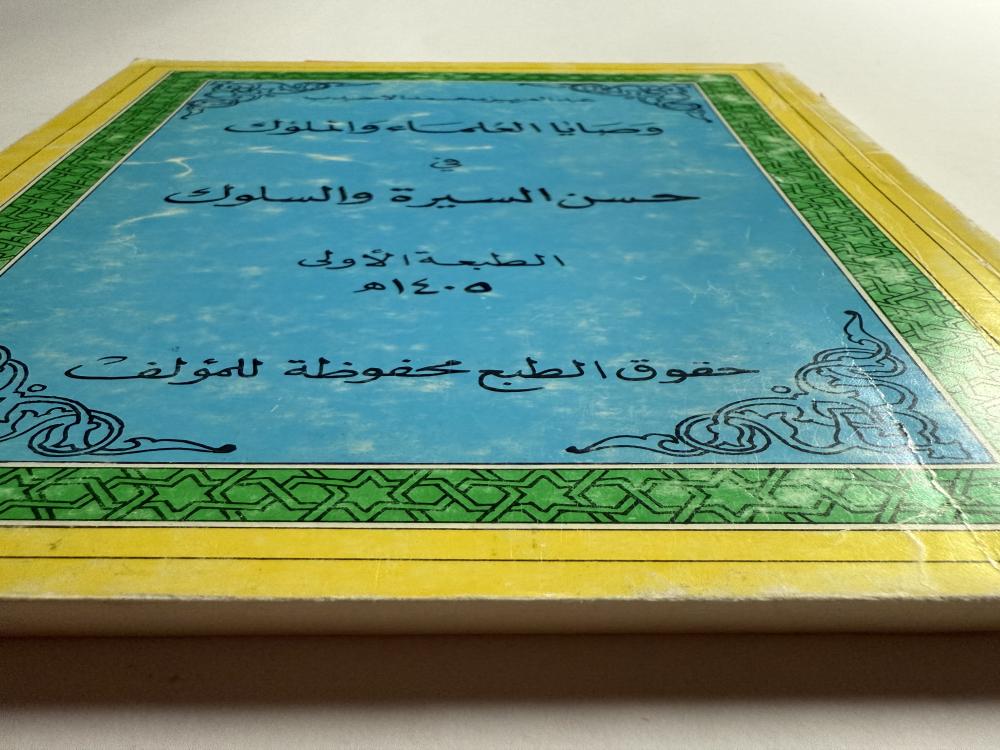 وصايا العلماء والملوك
في
حسن السيرة والسلوك
الطبعة الأولى
١٤٠٥هـ
حقوق الطبع محفوظة للمؤلف